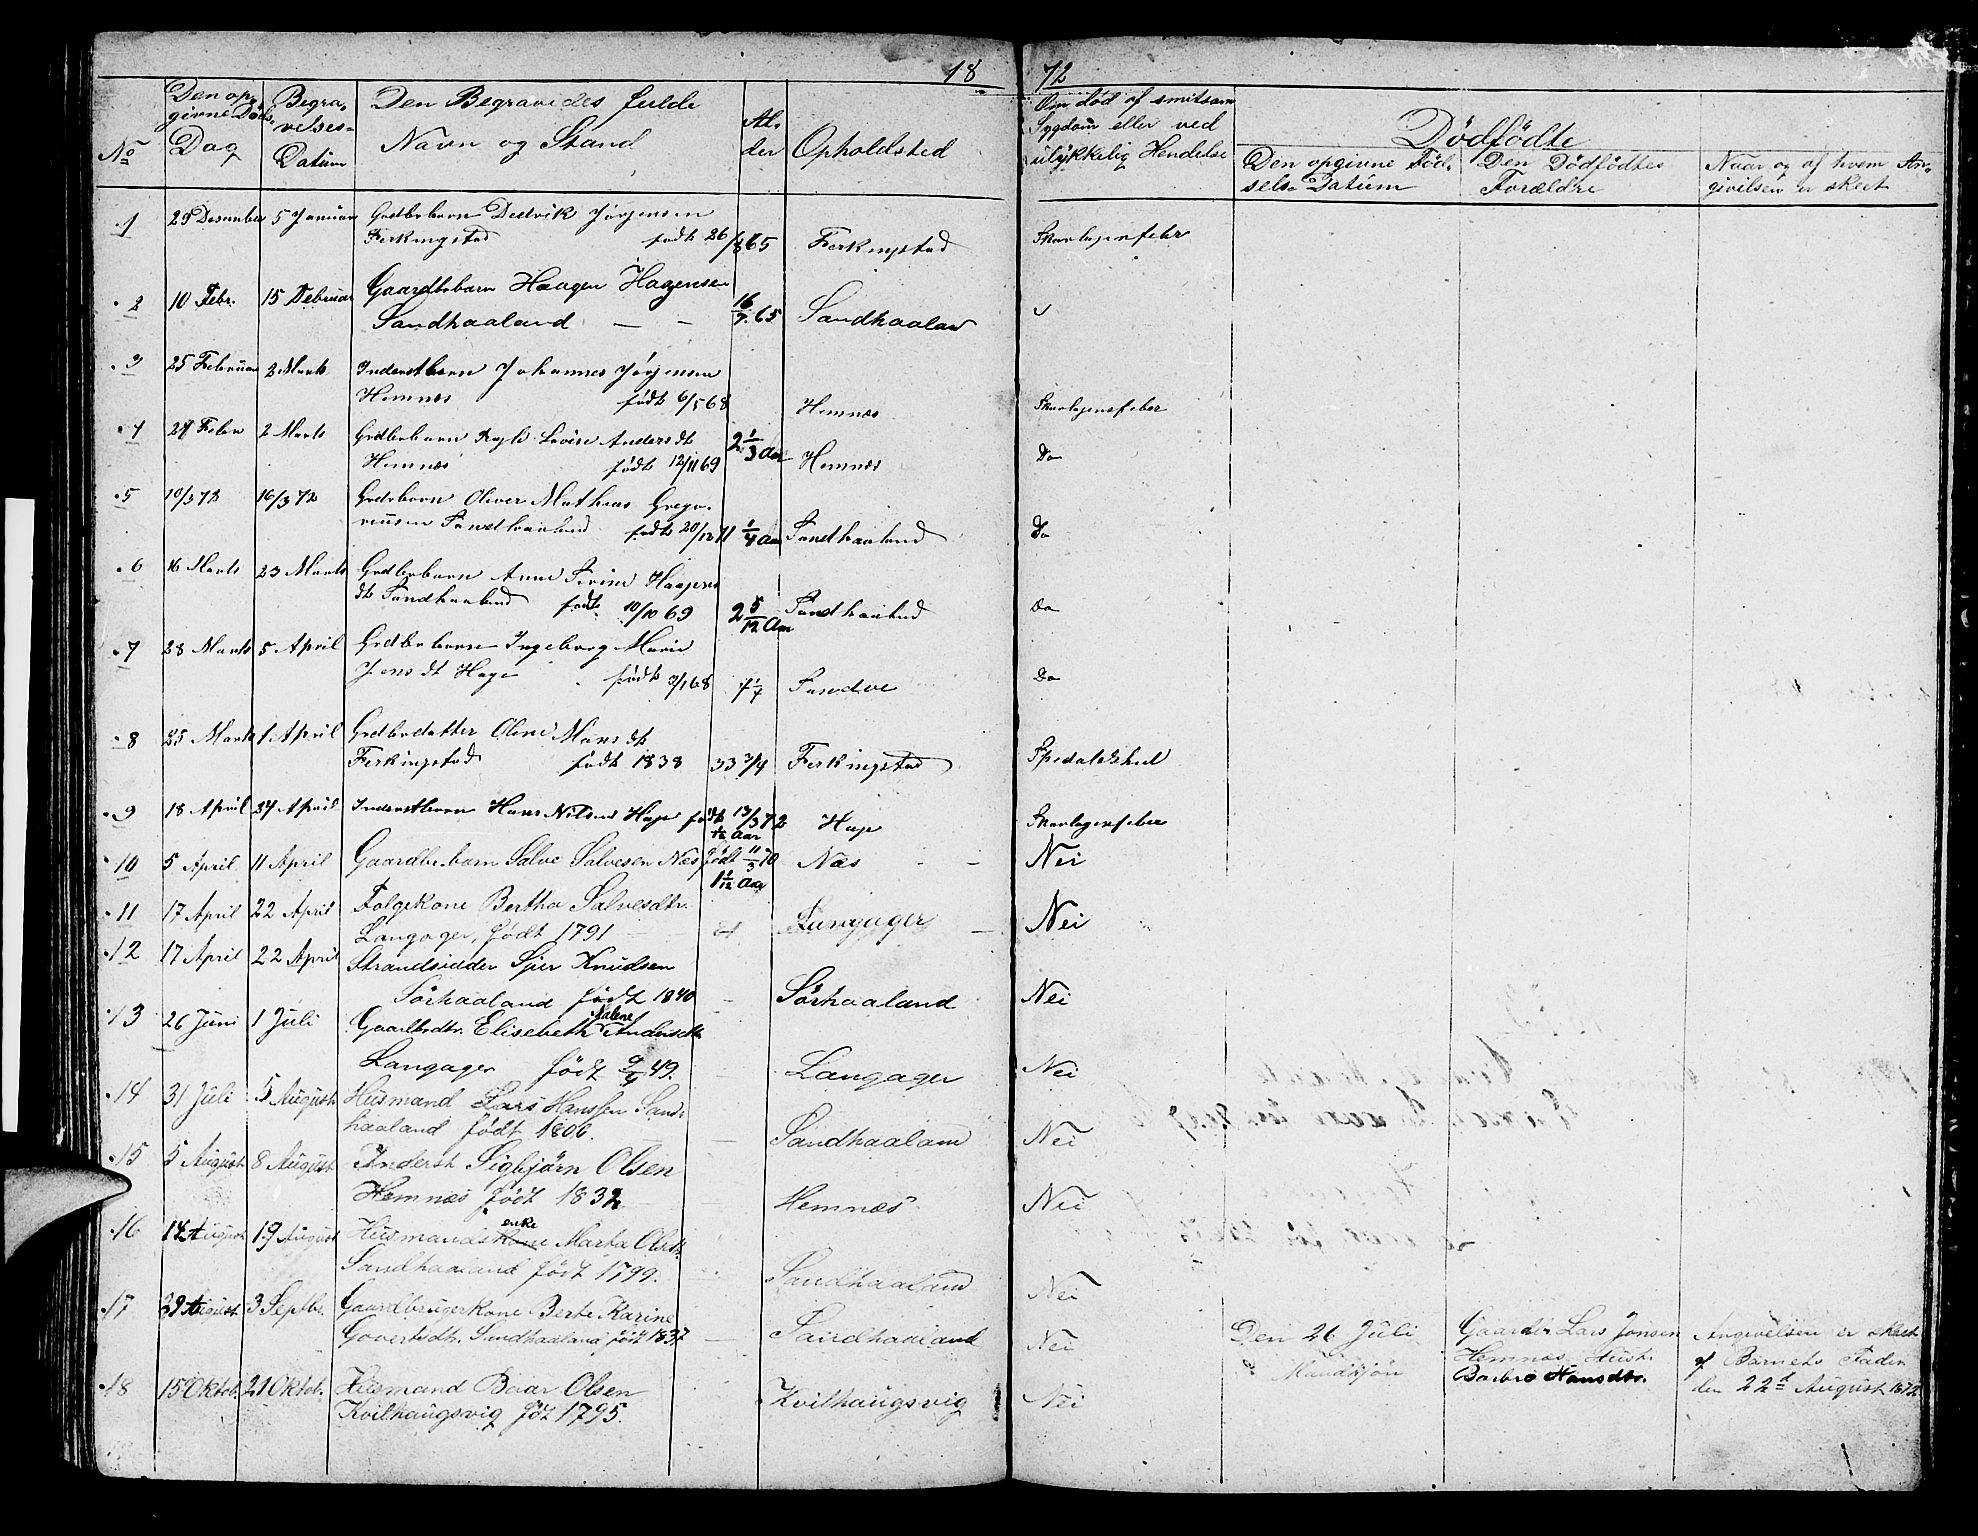 1872
No
Den opgivne Døds-Dag
Begravelses-Datum
Den Begravedes fulde Navn og Stand
Alder
Opholdsted
Om død af smitsom Sygdom eller ved ulykkelig Hendelse
Dødfødte
Den opgivne Fødsels-Datum
Den Dødfødtes Forældre
Naar og af hvem Angivelsen er skeet
1 29 Desember 5 Januar Grdbrbarn Dedrik Jørgensen
Ferkingstad født 26/8 65 Ferkingstad Skarlagensfeber
2 10 Febr. 15 Februar Gaardbrbarn Haagen Hagensen
Sandhaaland — — 16/7 65 Sandhaaland
3 25 Februar 2 Marts Inderstbarn Johannes Jørgensen
Hemnes født 6/5 68 Hemnes Skarlagensfeber
4 24 Febr 2 Marts Grdbrbarn Lovise Andersdt
Hemnes født 12/11 69 2 1/3 Aar Hemnes Do
5 10/3 72 16/3 72 Grdbrbarn Oliver Mathias Grego-
riusen Sandhaaland født 20/12 71 1/4 Aar Sandhaaland Do
6 16 Marts 23 Marts Grdbrbarn Anne Serine Haagens
dt Sandhaaland født 10/10 69 2 5/12 Aar Sandhaaland Do
7 28 Marts 5 April Grdbrbarn Ingeborg Marie
Jensdt Hage født 3/1 68 4 1/4 Sandve Do
8 25 Marts 1 April Grdbrdatter Oline Mansdt
Ferkingstad født 1838 33 3/4 Ferkingstad Spedalskhed
9 18 April 24 April Inderstbarn Hans Nilsen Hage født 13/3 72 Hage Skarlagensfeber
1/12 Aar
10 5 April 11 April Gaardbr.barn Salve Salvesen Næs født 11/3 70 Næs - - Nei
1 1/12 Aar
11 17 April 22 April Folgekone Bertha Salvesdtr.
Langager, født 1791 Langager — Nei
12 17 April 22 April Strandsidder Sjur Knudsen
Sørhaaland født 1840 - Sørhaaland Nei
13 26 Juni 1 Juli Gaardbrdtr. Elisebeth Malene Andersdtr
Langager født 9/4 49. - Langager Nei
14 31 Juli 5 August Husmand Lars Hanssen Sand-
haaland født 1806. Sandhaaland Nei
15 5 August 8 August Inderst Sigbjørn Olsen
Hemnæs født 1832 Hemnæs Nei
16 14 August 19 August Husmandskone enke Marta Olsdtr.
Sandhaaland født 1799. Sandhaaland Nei
17 29 August 3 Septbr. Gaardbrugerkone Berte Karine
Govertsdtr. Sandhaaland, født 1837 — Sandhaaland Nei
Den 26 Juli
Mandkjøn
Gaardbr. Lars Jonsen
Hemnæs, Hust.
Barbro Hansdtr.
Angivelsen er skeet
af Barnets Fader
den 22d August 1872
18 15 Oktob. 21 Oktob. Husmand Baar Olsen
Kvilhaugsvig føt 1795. Kvilhaugsvig Nei